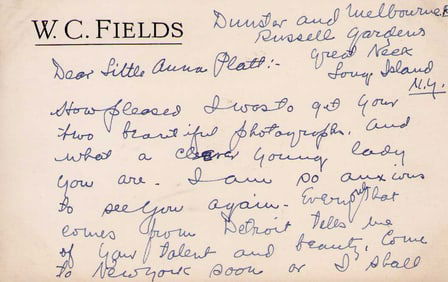 W. C. FIELDS
Dunster and Melbourne
Russell Gardens
Great Neck
Long Island
N.Y.
Dear Little Anna Platt:-
How pleased I was to get your
two beautiful photographs. And
what a clever young lady
you are. I am so anxious
to see you again. Every one that
comes from Detroit tells me
of your talent and beauty. Come
to New York soon or I shall